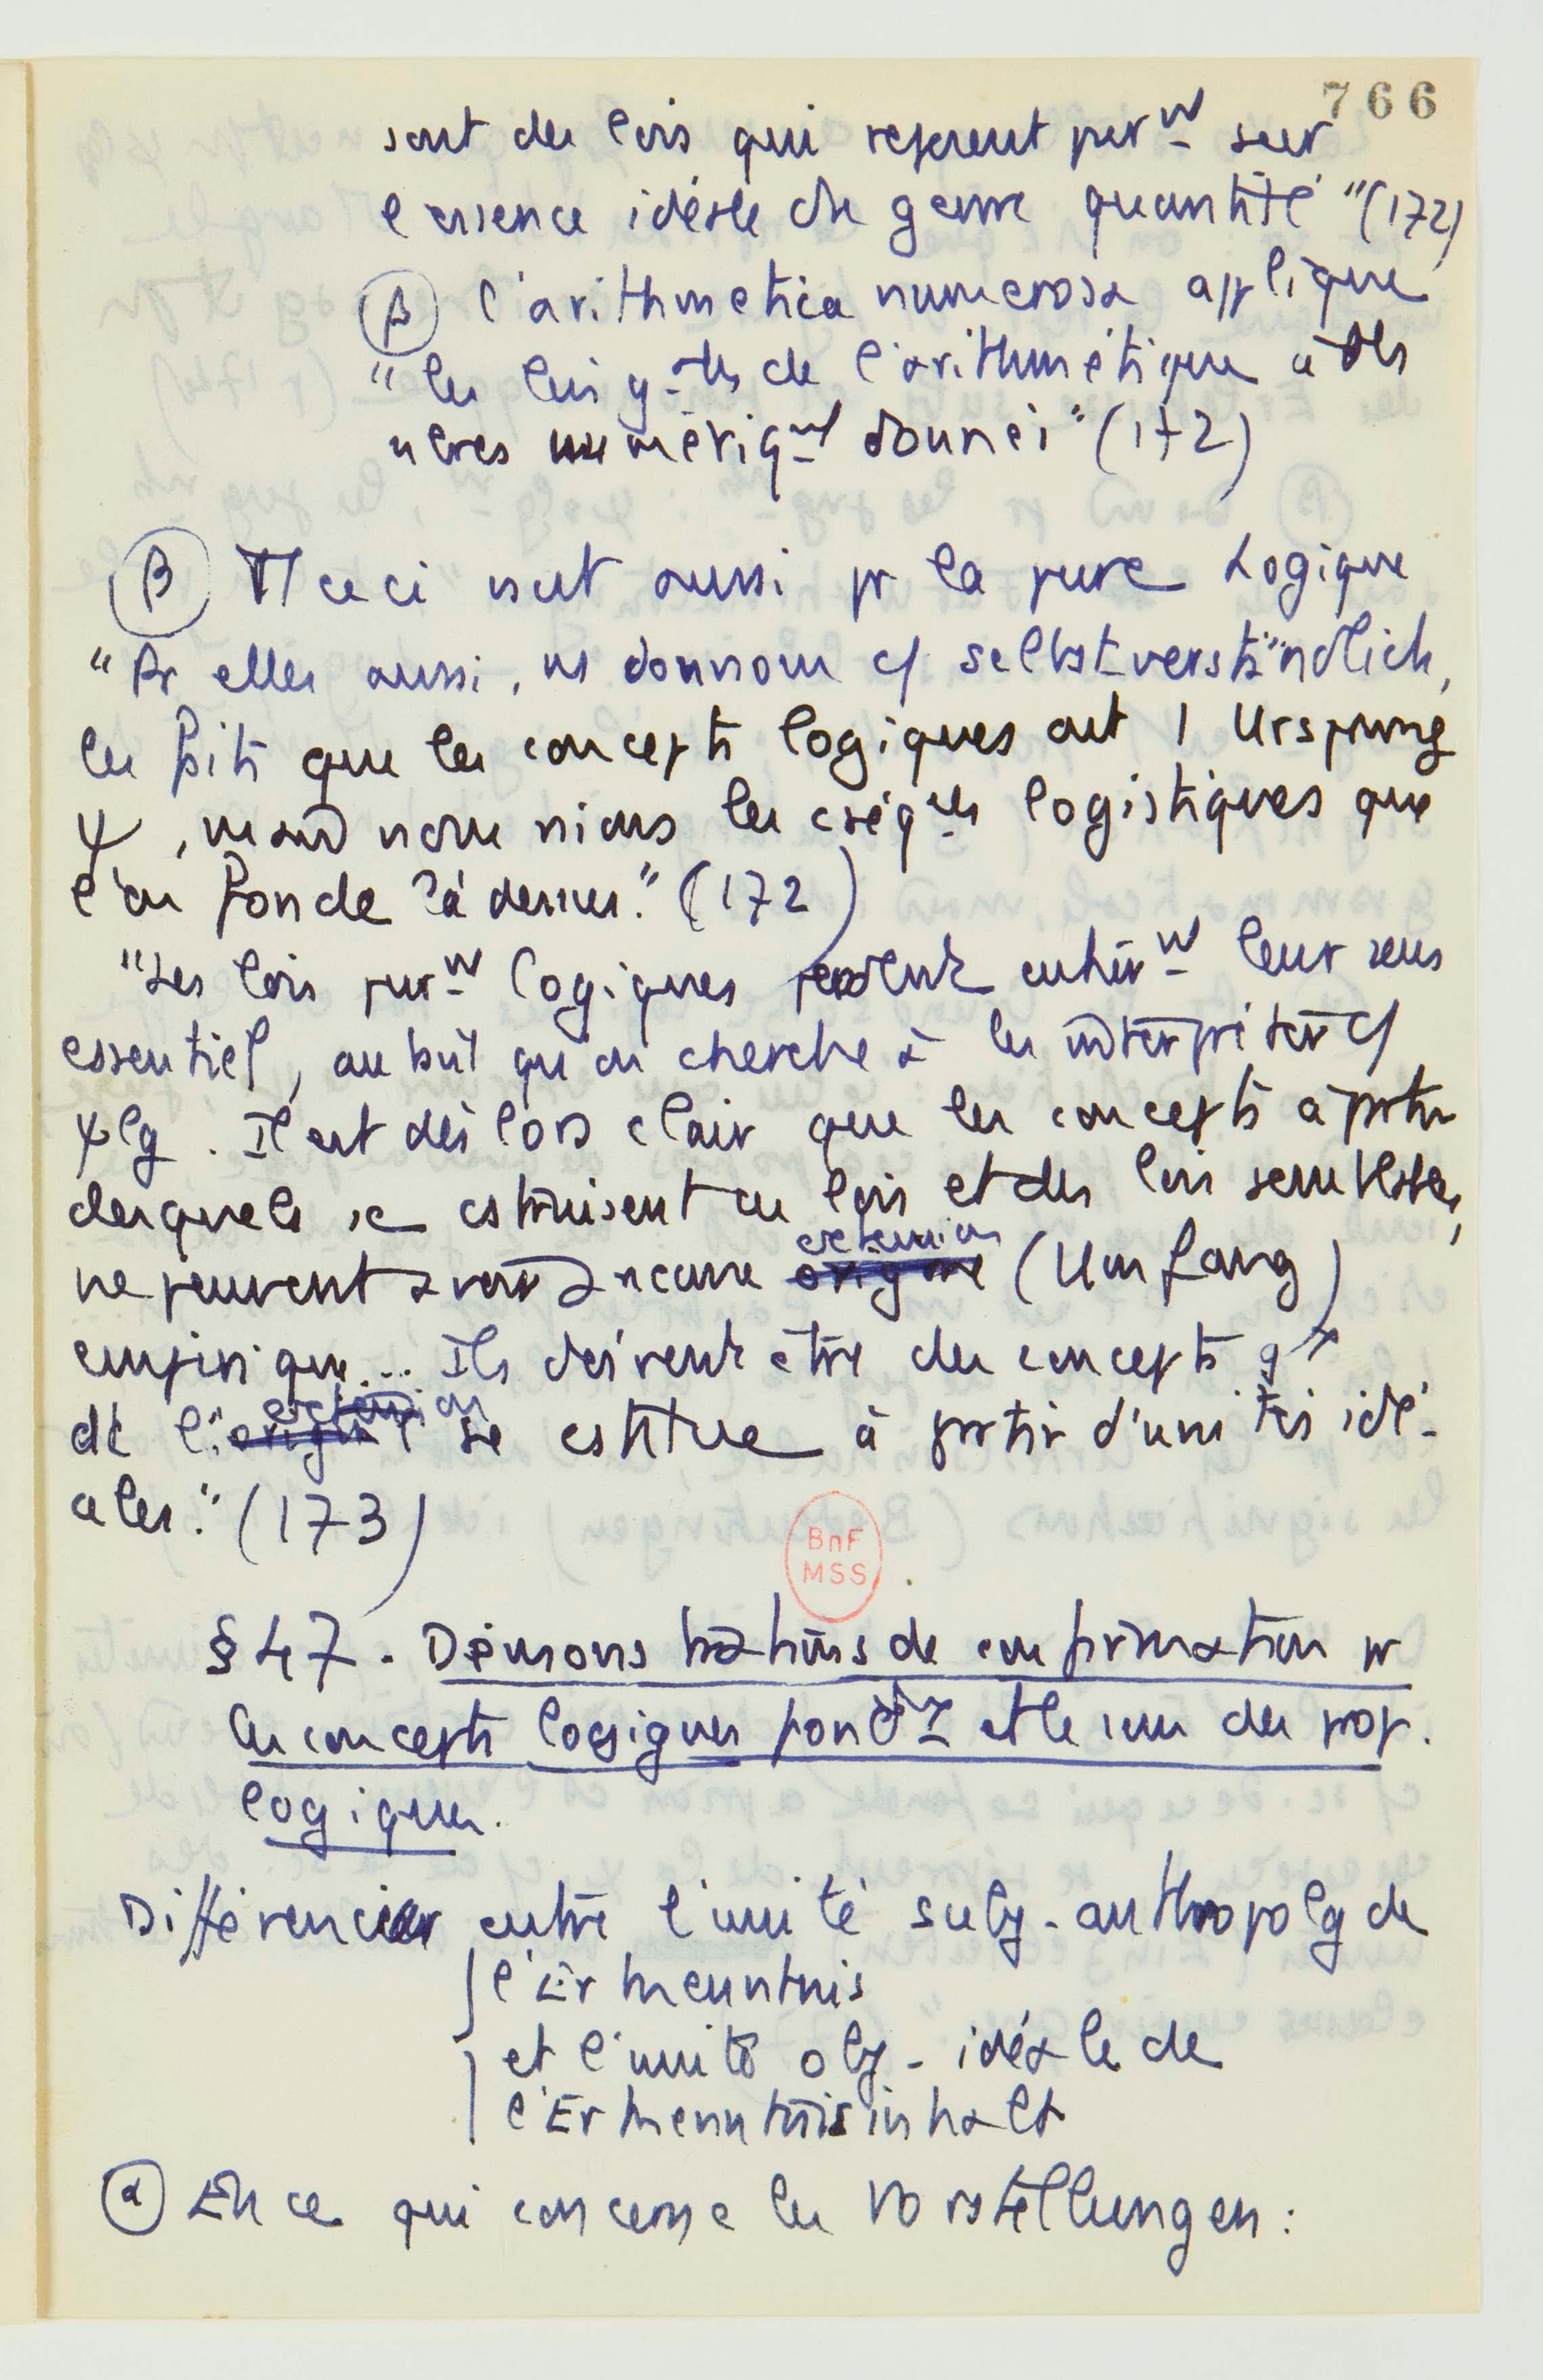 766
sont des lois qui reposent purnt sur
l'essence idéale du genre quantité" (172)
β l'arithmetica numerosa applique
"les lois g-les de l'arithmétique à des
nbres numériqnt donnés" (172)
B Tt ceci vaut aussi pr la pure Logique
"Pr elles aussi, ns donnons c/ selbstverständlich,
le fait que les concepts logiques ont 1 Ursprung
ψ, mais nous nions les cséqces logistiques que
l'on fonde là dessus." (172)
"Les lois purnt logiques perdent entièrnt leur sens
essentiel, aussitôt qu'on cherche à les interpréter c/
ψlg. Il est dès lors clair que les concepts à partir
desquels se cstruisent ces lois et des lois semblables,
ne peuvent avoir aucune origine extension (Umfang)
empirique... Ils doivent être des concepts gx
dt l'origine extension se cstitue à partir d'unités idé-
ales." (173)
BnF
MSS
§ 47 - Démonstrations de confirmation pr
les concepts logiques fondx et le sens des prop.
logiques.
Différencier entre l'unité subj-anthropolg de
l'Erkenntnis
et l'unité obj-idéale de
l'Erkenntnisinhalt
α En ce qui concerne les Vorstellungen :